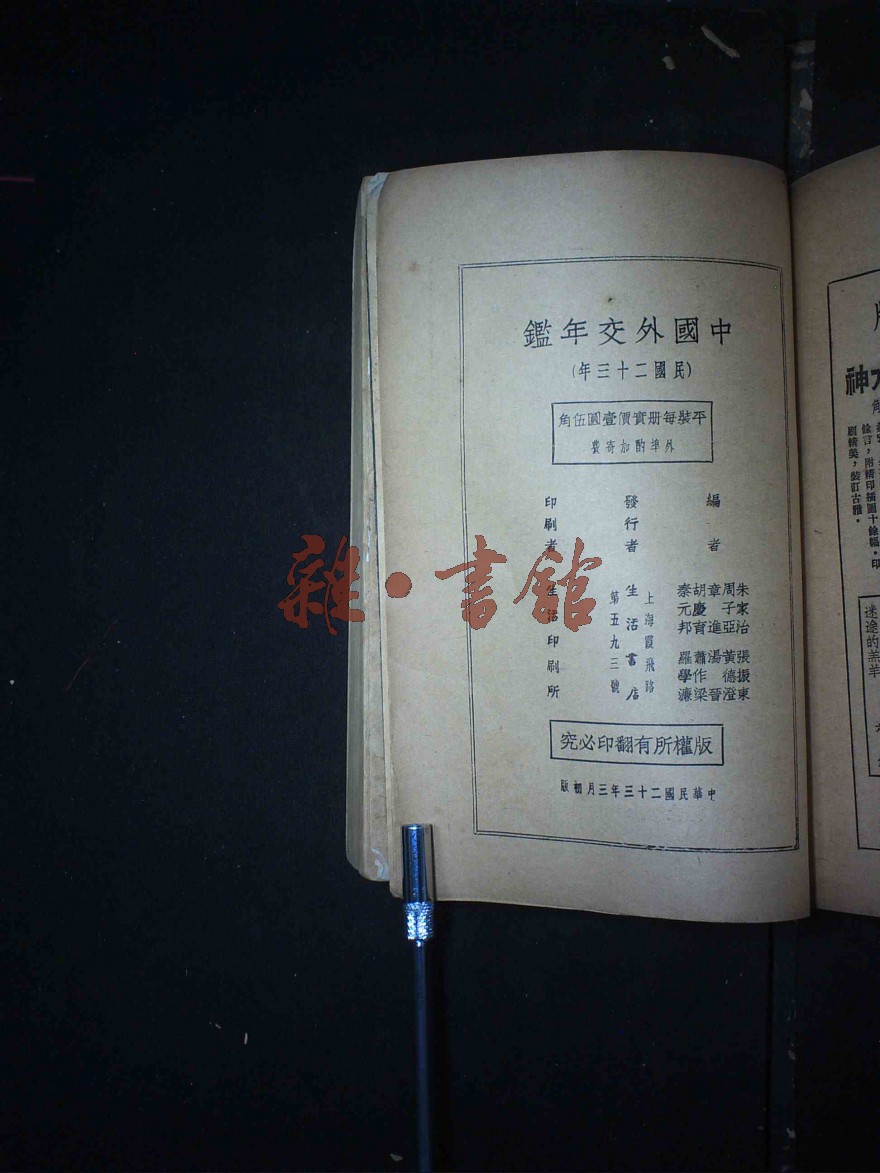 中國外交年鑑
(民國二十三年)
平裝每册實價壹圓伍角
外埠酌加寄費
編者
朱家治 張振東
周子亞 黃德澄
章進 湯晉
胡慶育 蕭作梁
秦元邦 羅學濂
發行者 生活書店
上海霞飛路
第五九三號
印刷者 生活印刷所
版權所有翻印必究
中華民國二十三年三月初版
神
餘言,附精印插圖十餘幅。印
刷精美,裝訂古雅。
迷途的羔羊
雜·書館